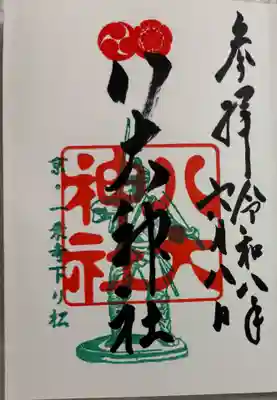 参拝 令和八年
七月八日
八大神社
八大
神社
京・一乗寺下り松